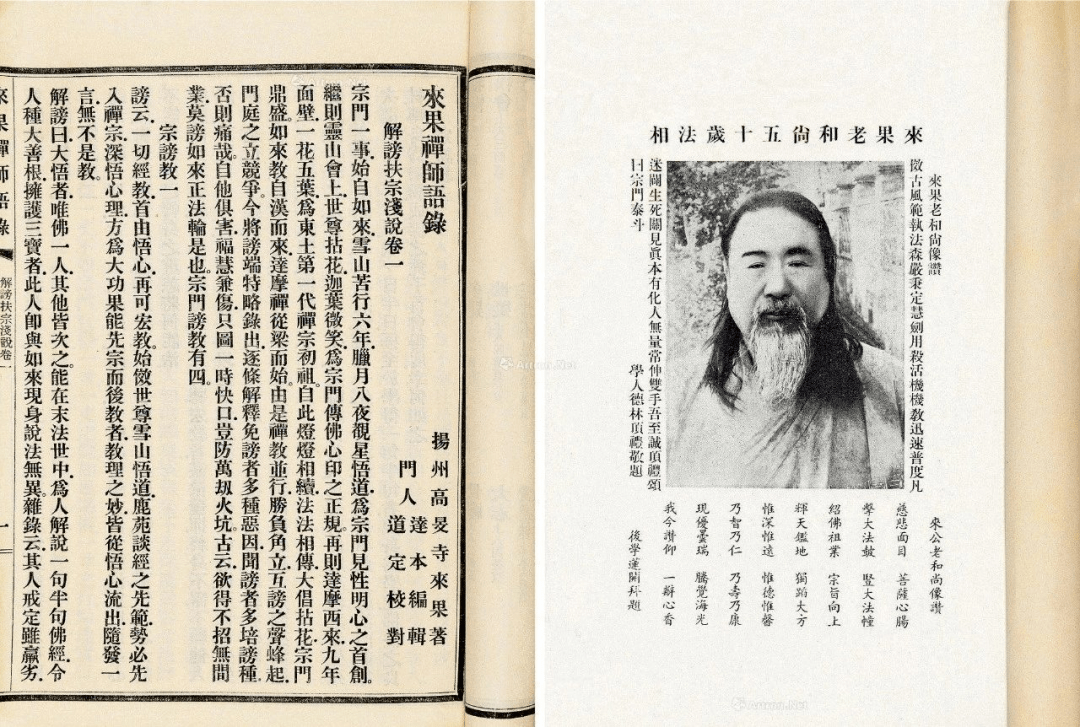 來果禪師語錄
解謗扶宗淺說卷一
揚州高旻寺來果著
門人達本編輯
道定校對
宗門一事始自如來雪山苦行六年臘月八夜覩星悟道爲宗門見性明心之首創
繼則靈山會上世尊拈花迦葉微笑爲宗門傳佛心印之正規再則達摩西來九年
面壁一花五葉爲東土第一代禪宗初祖自此燈燈相續法法相傳大倡拈花宗門
鼎盛如來教自漢而來達摩禪從梁而始由是禪教並行勝負角立互謗之聲蜂起
門庭之立競爭今將謗端特略錄出逐條解釋免謗者多種惡因聞謗者多培謗種
否則痛哉自他俱害福慧兼傷只圖一時快口豈防萬劫火坑古云欲得不招無間
業莫謗如來正法輪是也宗門謗教有四
宗謗教一
謗云一切經教首由悟心再可宏教始徵世尊雪山悟道鹿苑談經之先範勢必先
入禪宗深悟心理方爲大功果能先宗而後教者教理之妙皆從悟心流出隨發一
言無不是教
解謗曰大悟者唯佛一人其他皆次之能在末法世中爲人解說一句半句佛經令
人種大善根擁護三寶者此人卽與如來現身說法無異雜錄云其人戒定雖羸劣
來果禪師語錄
解謗扶宗淺說卷一
一
來果老和尙五十歲法相
來果老和尙像讚
徵古風範執法森嚴秉定慧劍用殺活機機教迅速普度凡
迷關生死關見眞本有化人無量常伸雙手吾至誠頂禮頌
曰宗門泰斗
學人德林頂禮敬題
來公老和尙像讚
慈悲面目 菩薩心腸
擊大法鼓 豎大法幢
紹佛祖業 宗旨向上
輝天鑑地 獨蹈大方
惟深惟遠 惟德惟馨
乃智乃仁 乃壽乃康
現優曇瑞 騰覺海光
我今讚仰 一瓣心香
後學蓮開科題